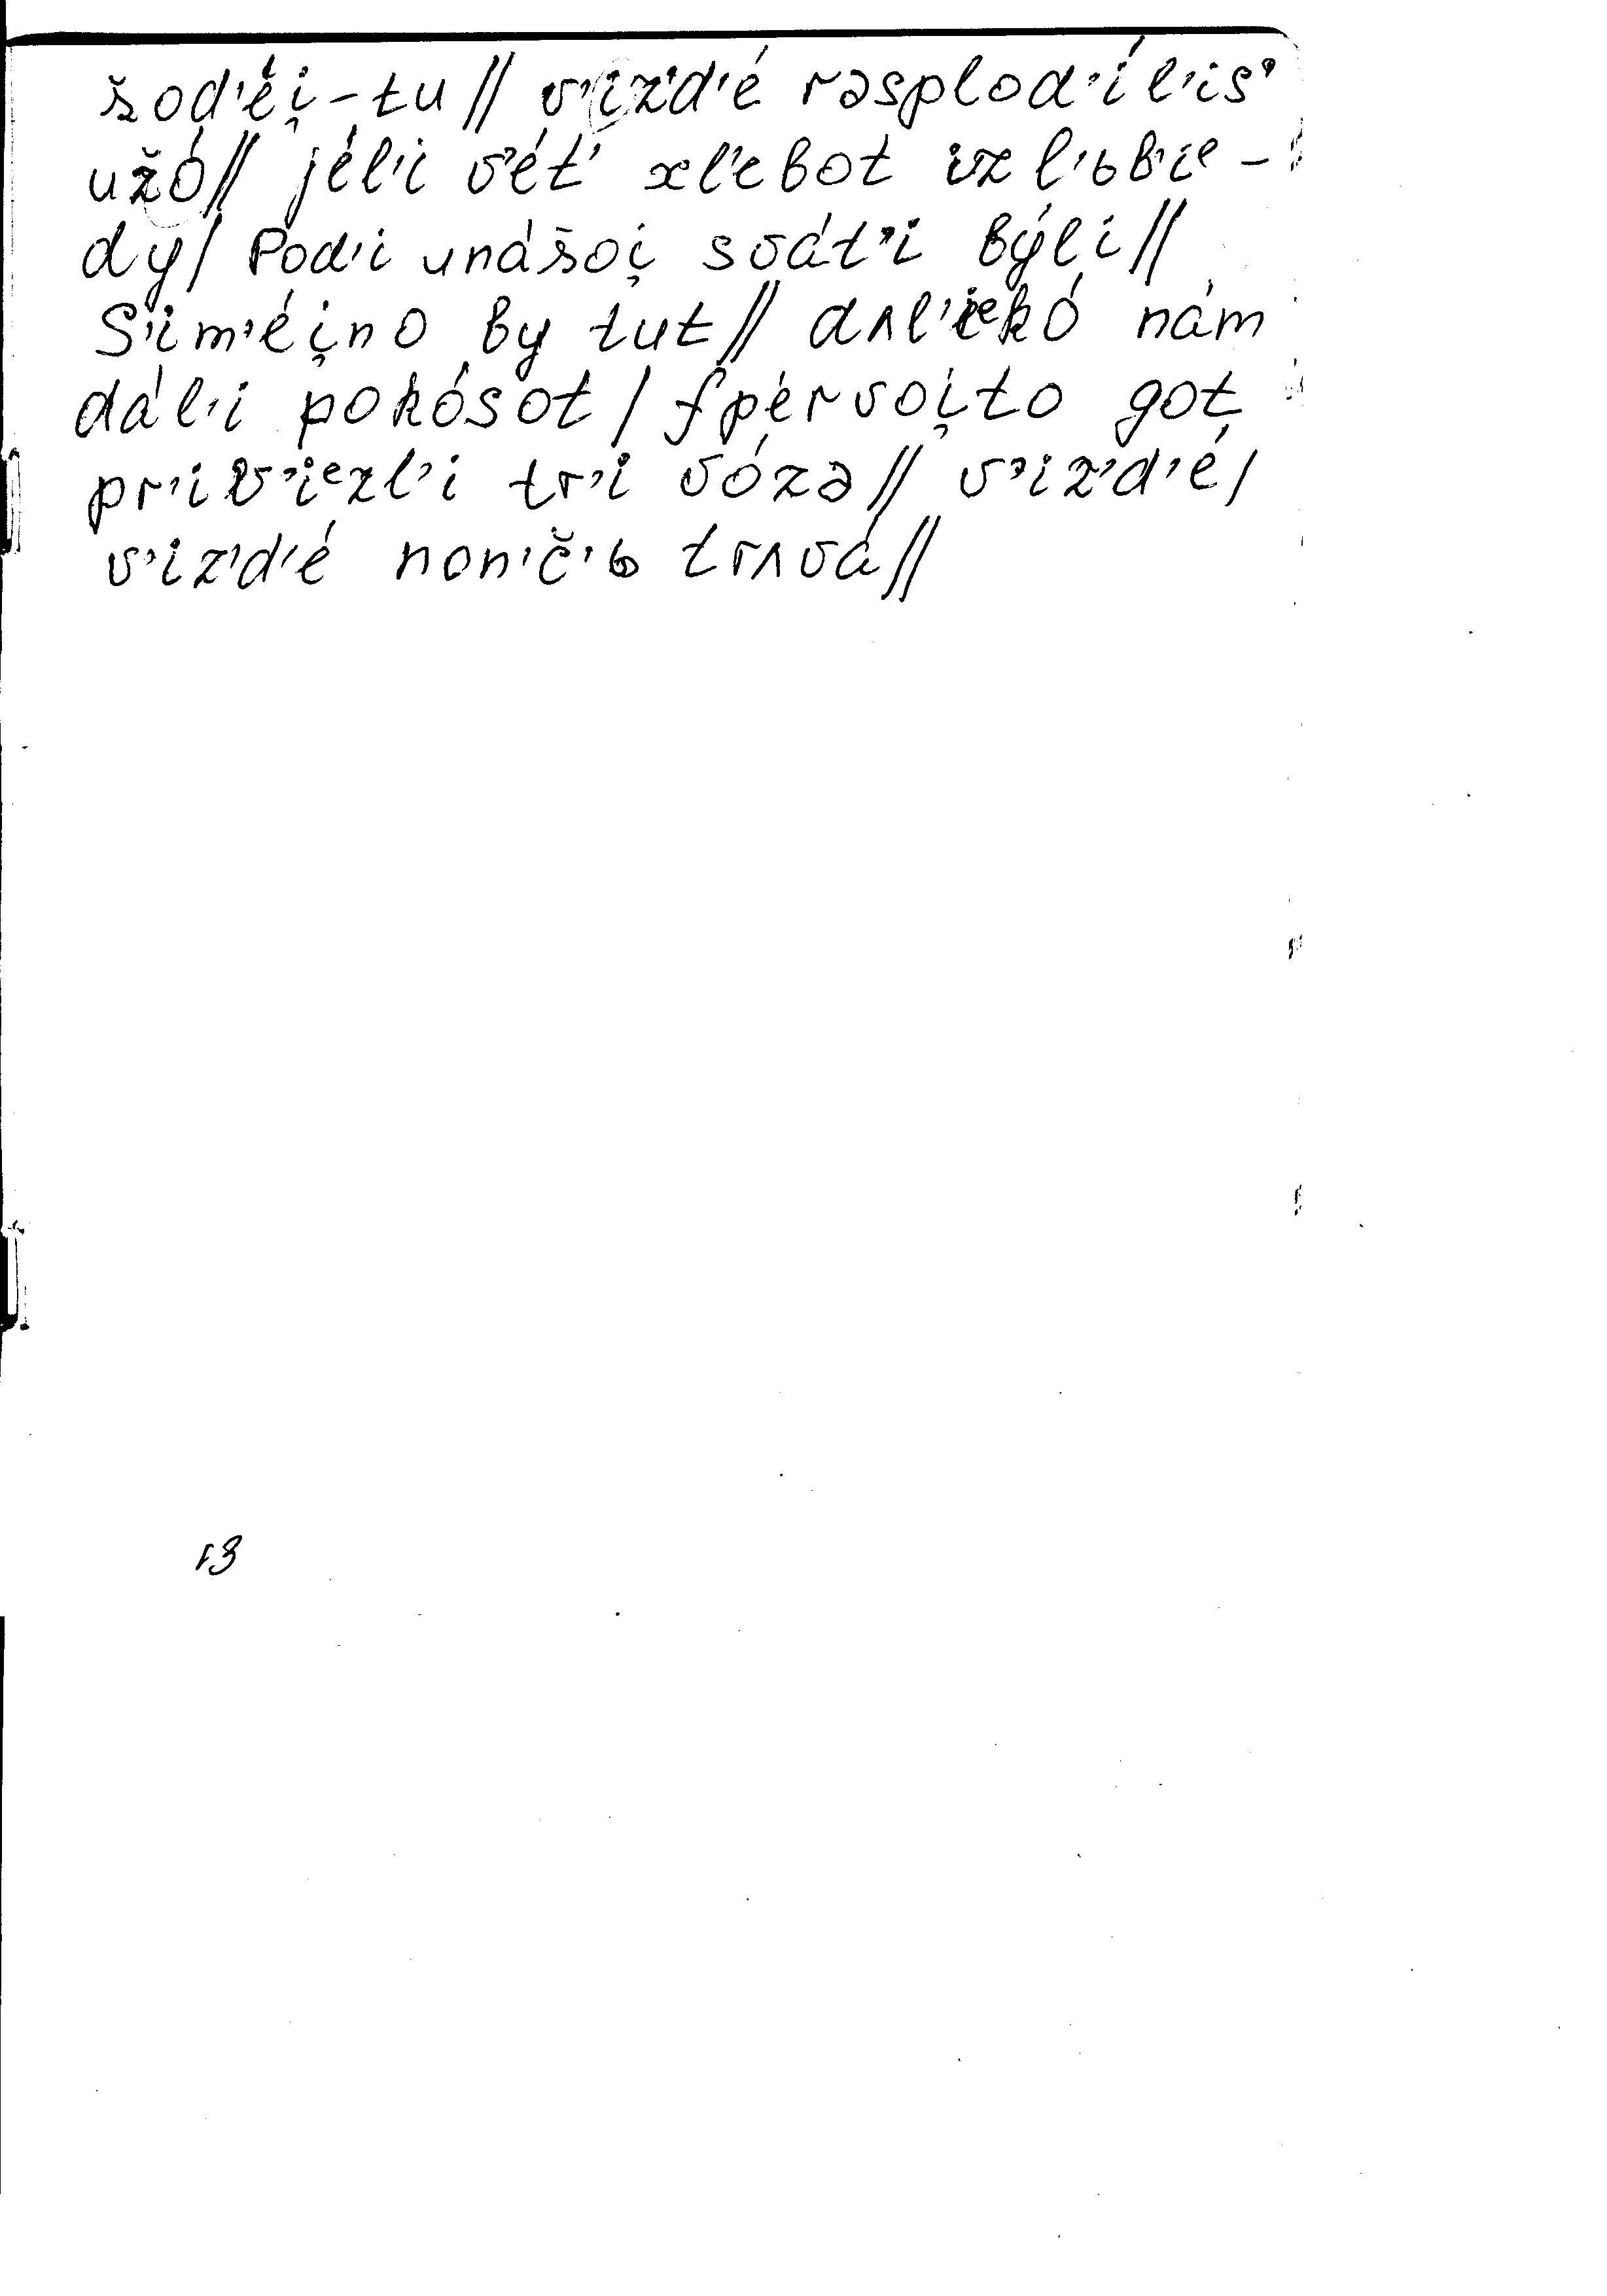 šod'éi̯-tu // v'iz'd'é rəsplod'íl'is'
užó // jél'i v'ét' xl'ebot iz l'ьb'ie-
dy / Pod'i unášoi̯ svát'i býli //
S'im'éi̯no by tut // dʌl'iekó nám
dál'i pokósot / fpérvoi̯to got
pr'iv'iezl'i tr'i vózə // v'iz'd'é /
v'iz'd'é non'č'ь trʌvá //
13